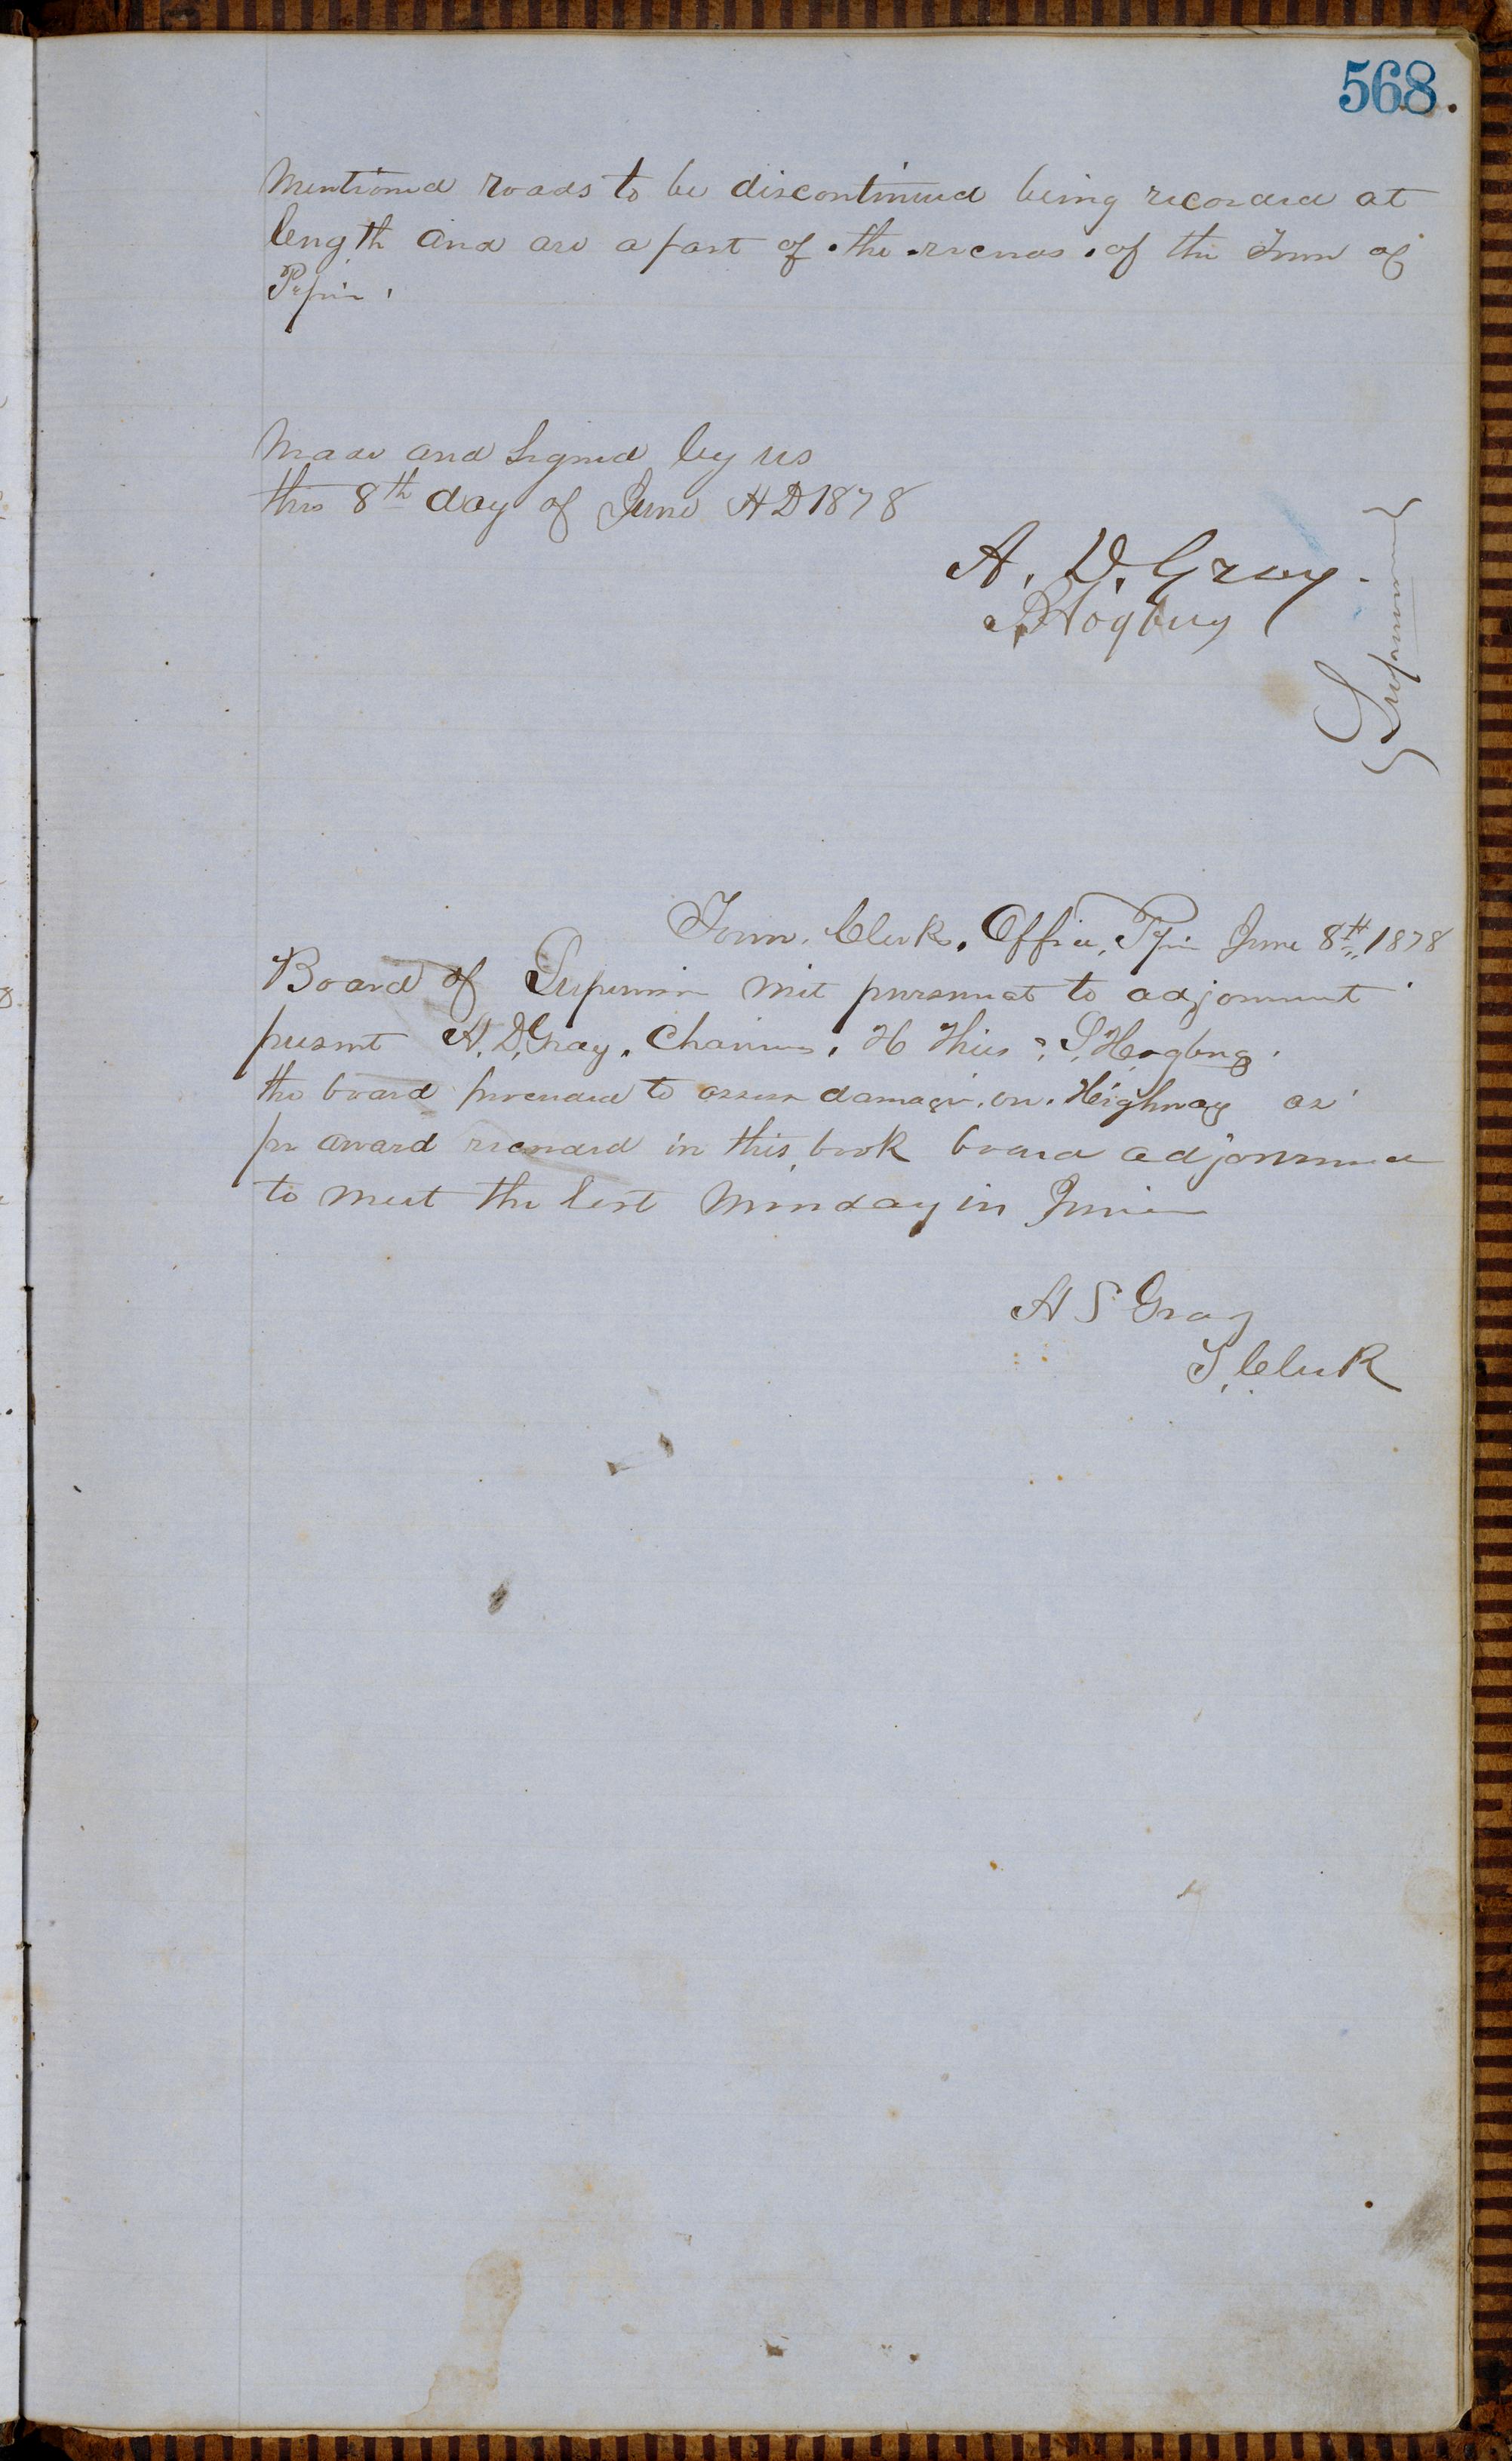 568.
Mentioned roads to be discontinued being recorded at
length and are a part of the records of the Town of
Pepin.
Made and Signed by us
this 8th day of June AD 1878
A. D. Gray.
S Hogberg
Supervisors
Town Clerks Office, Pepin June 8th 1878
Board of Supervisors Met pursuant to adjournment
present A. D. Gray. Chairman. H Thies & S. Hogberg.
the board proceeded to assess damages on Highway as
per award recorded in this book board adjourned
to meet the last Monday in June
H S Gray
T, Clerk